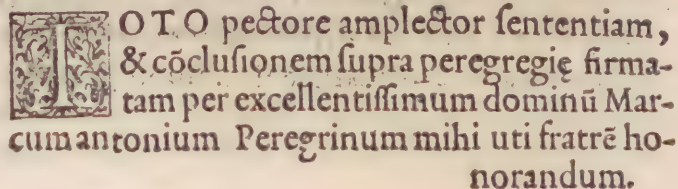 TOTO pectore amplector ſententiam,
& cõcluſionem ſupra peregregię firma-
tam per excellentiſſimum dominũ Mar-
cumantonium Peregrinum mihi uti fratrẽ ho-
norandum.